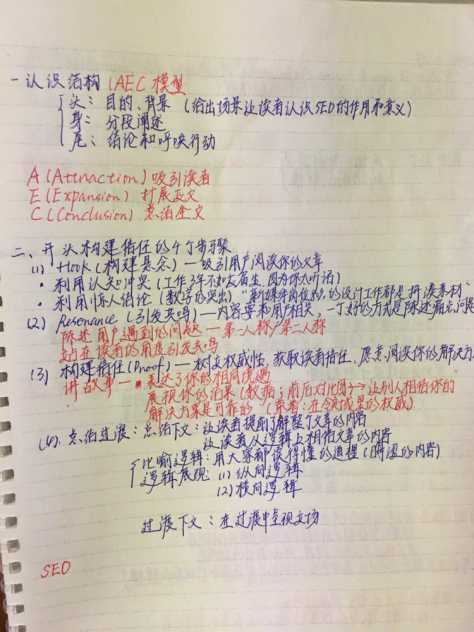 一 认识结构 (AEC 模型
头：目的、背景（给出场景让读者认识SEO的作用和意义）
身：分段阐述
尾：结论和呼唤行动
A (Attraction) 吸引读者
E (Expansion) 扩展正文
C (Conclusion) 总结全文
二、开头构建信任的4个步骤
(1) Hook (构建悬念) — 吸引用户阅读你的文章
· 利用认知冲突 (工作3年不如应届生，因为你太听话)
· 利用惊人结论 (数字的突出) "新媒体岗位的，的设计工作都是
(2) Resonance (引发共鸣) — 内容要和用户相关，一个好的方式是陈述痛点问
陈述用户遇到的问题 — 第一人称/第二人称
站在读者的角度引发共鸣
(3) 构建信任 (Proof) — 树立权威性，获取读者信任，愿意阅读你的解决方
讲故事 — 表达了你的相同境遇
展现你的结果 (数据；前后对比图) → 让别人相信你的
解决方案是可靠的（来自：在领域里的权威)
(4). 总结过渡：总结下文：让读者提前了解整个文章的内容
让读者从逻辑上相信文章的内容
比喻逻辑：用大家都读得懂的道理
逻辑展现 (1) 纵向逻辑
(2) 横向逻辑
过渡下文：在过渡中呈现文场
SEO